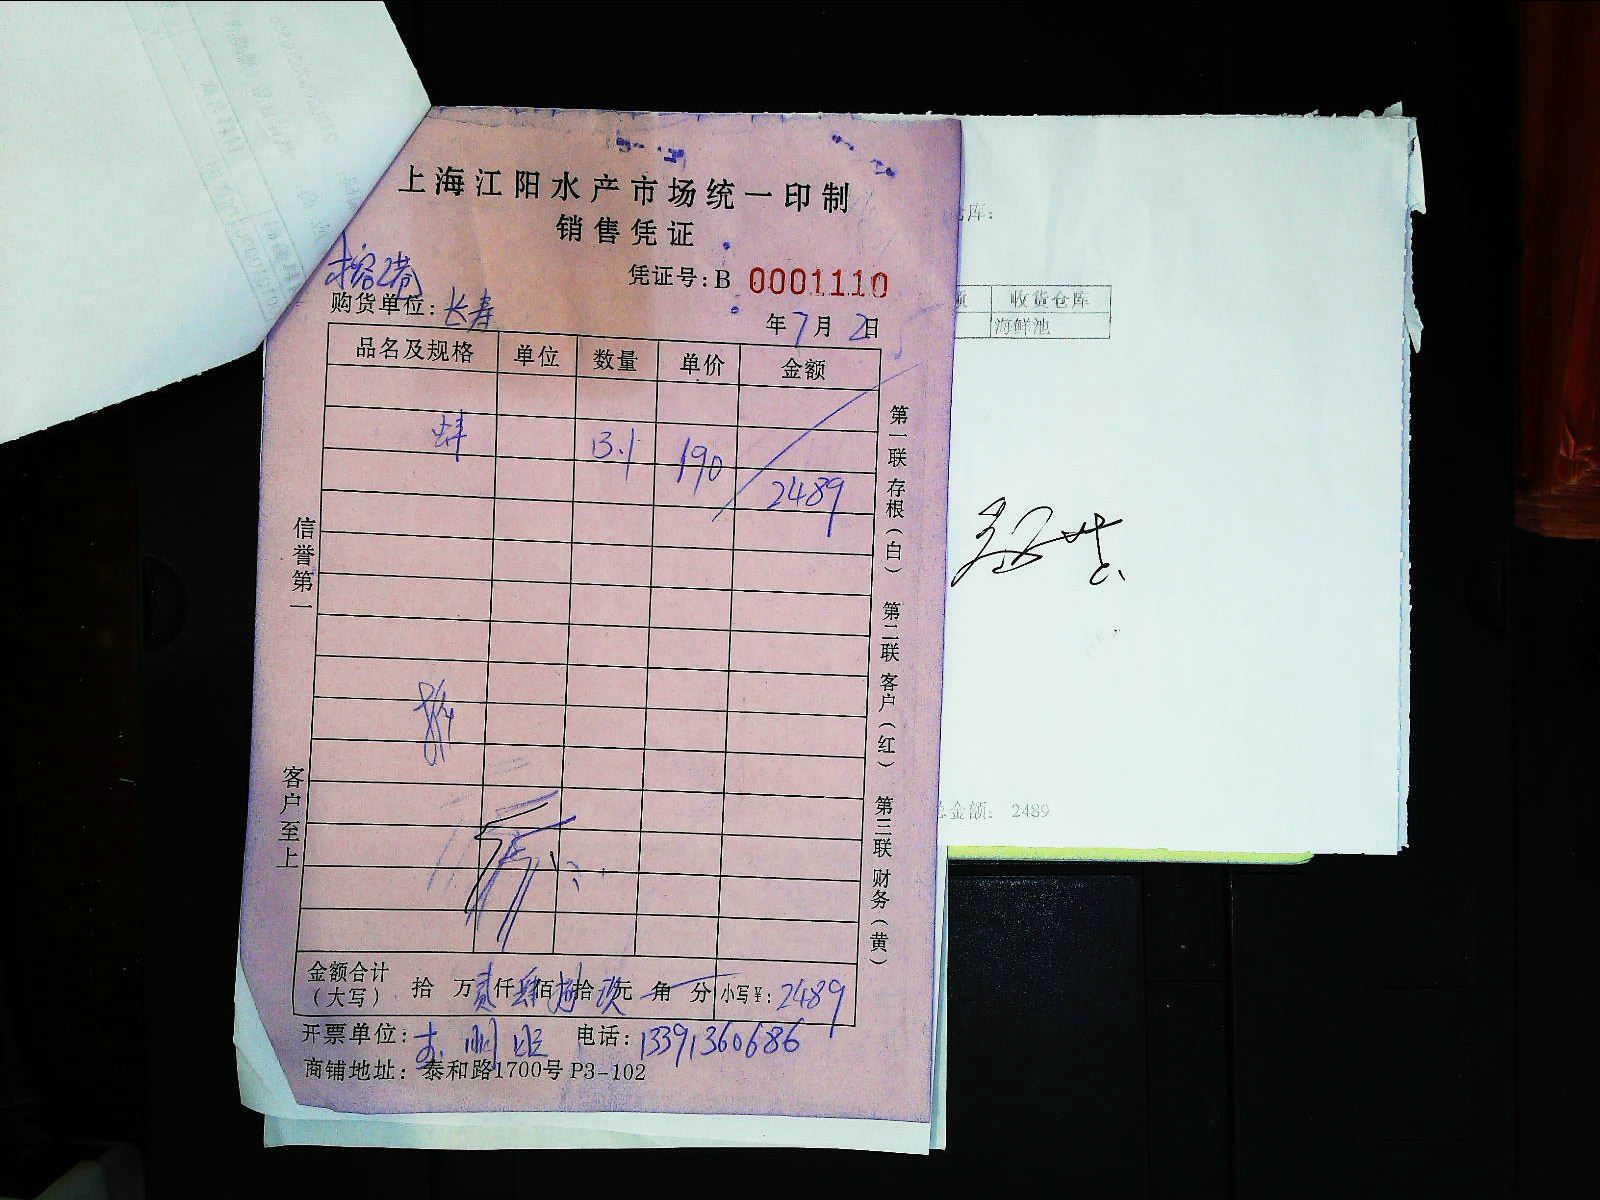 上海江阳水产市场统一印制
销售凭证
凭证号:B 0001110
榕港
购货单位:长寿
年7月2日
品名及规格 单位 数量 单价 金额
蚌 13.1 190 2489
信誉第一
客户至上
第一联 存根(白) 第二联 客户(红) 第三联 财务(黄)
金额合计(大写) 拾 万贰仟肆佰捌拾玖元 角 分 小写¥:2489
开票单位: 电话:13391360686
商铺地址: 泰和路1700号 P3-102
库:
收货仓库
海鲜池
总金额: 2489